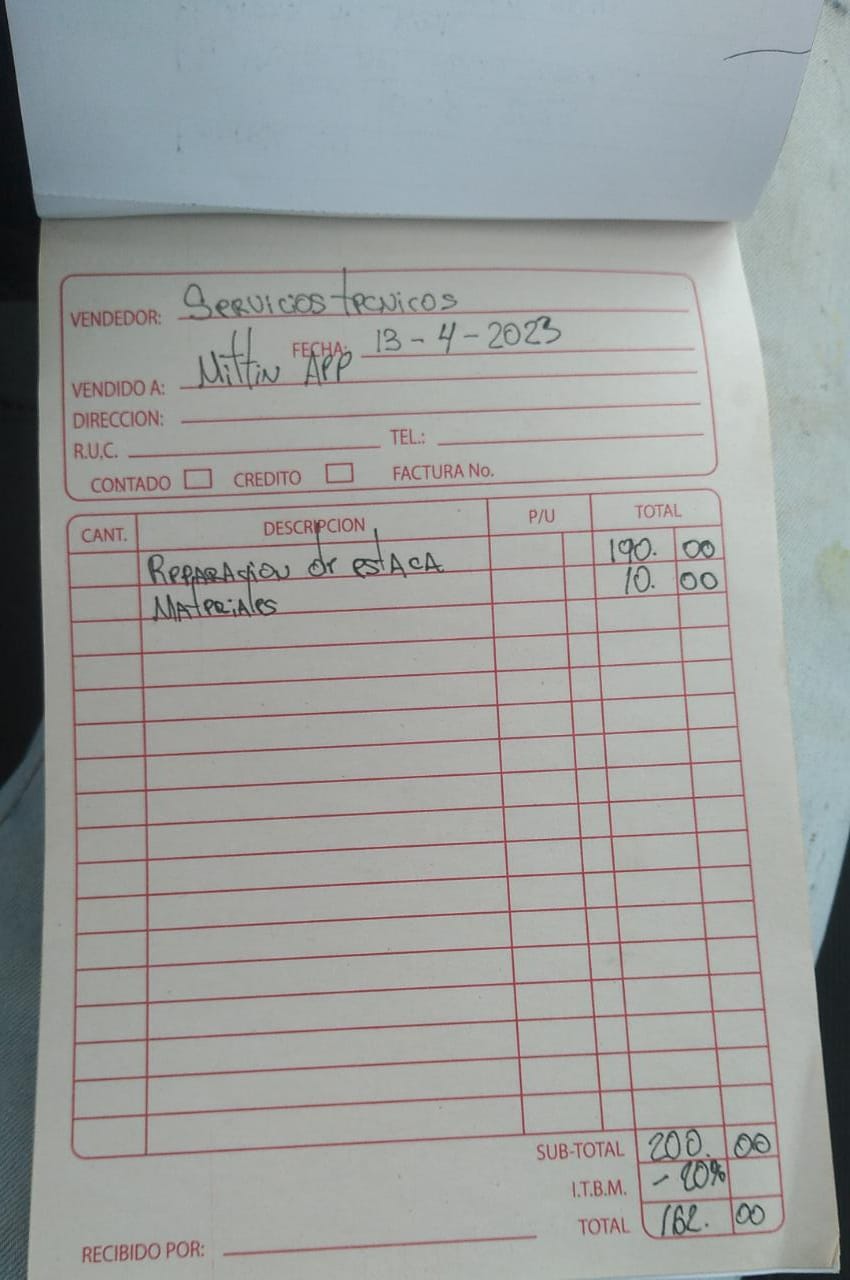 VENDEDOR: Servicios tecnicos
FECHA: 13-4-2023
VENDIDO A: Mittin APP
DIRECCION:
R.U.C. TEL.:
CONTADO CREDITO FACTURA No.
CANT. DESCRIPCION P/U TOTAL
Reparacion de estaca 190. 00
Materiales 10. 00
SUB-TOTAL 200. 00
I.T.B.M. - 20%
TOTAL 162. 00
RECIBIDO POR: